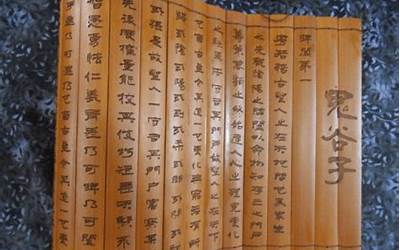 鬼谷子
捭闔第一
粵若稽古聖人之在天地間也為眾生
之先觀陰陽之開闔以命物知存亡之門戶
籌策萬類之終始達人心之理見變化
之朕焉而守司其門戶故聖人之在天下
也自古至今其道一也變化無窮各有所
歸或陰或陽或柔或剛或開或閉或弛
或張是故聖人一守司其門戶審察其
先後度權量能校其伎巧短長夫賢不
智愚勇怯仁義有差乃可捭乃可